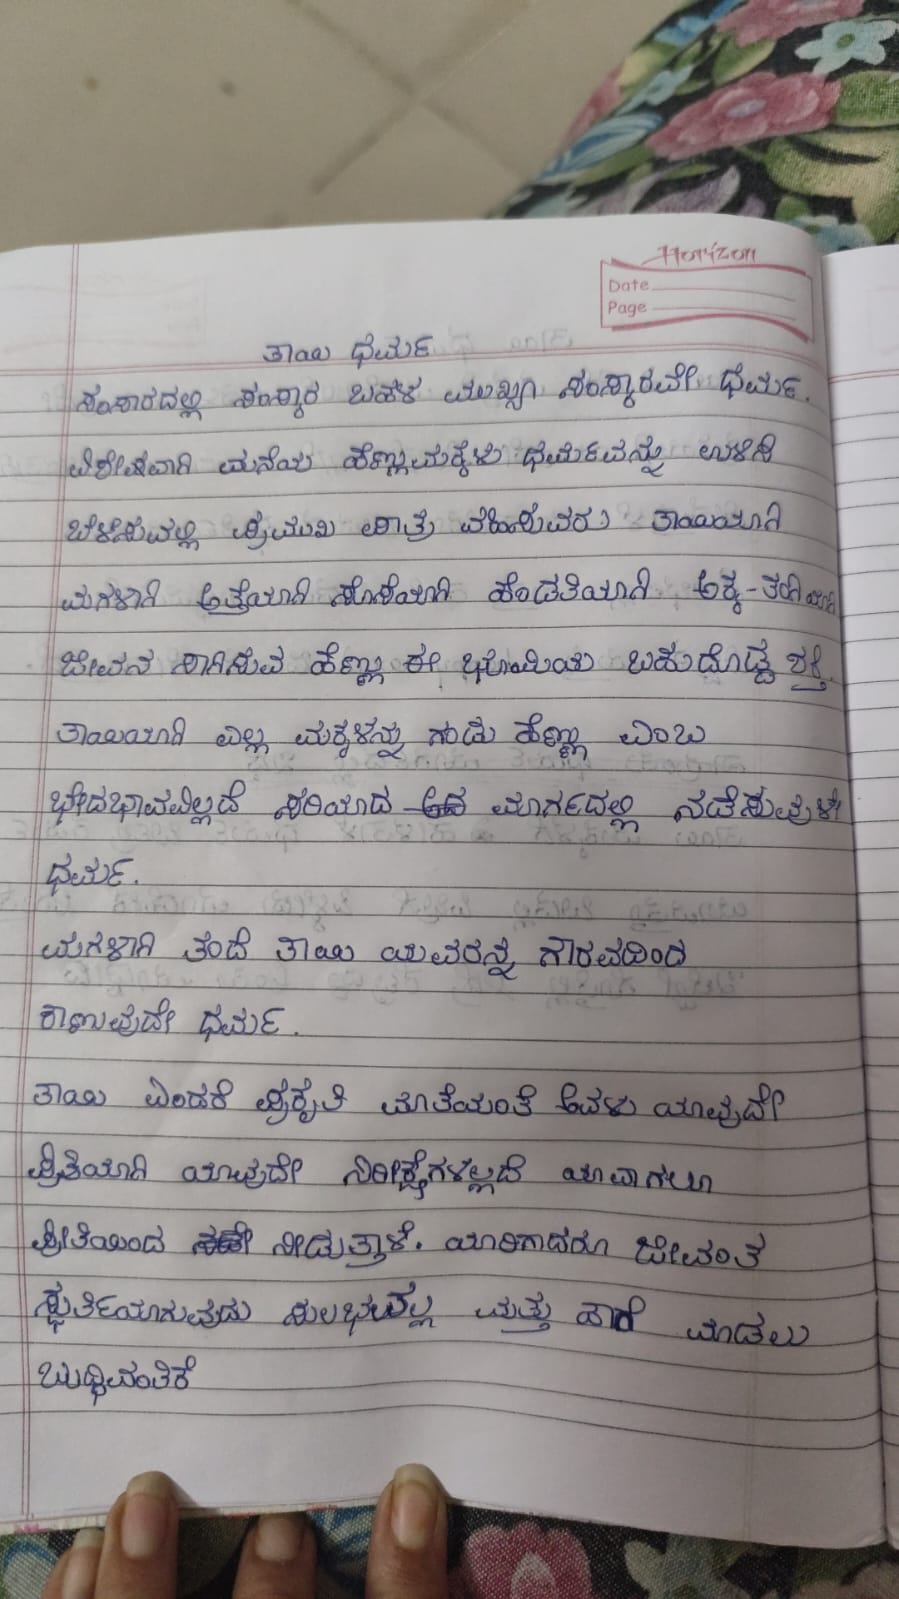 Horizon
Date
Page
ತಾಯಿ ಧರ್ಮ
ಸಂಸಾರದಲ್ಲಿ ಸಂಸ್ಕಾರ ಬಹಳ ಮುಖ್ಯ ಸಂಸ್ಕಾರವೇ ಧರ್ಮ.
ವಿಶೇಷವಾಗಿ ಮನೆಯ ಹೆಣ್ಣುಮಕ್ಕಳು ಧರ್ಮವನ್ನು ಉಳಿಸಿ
ಬೆಳೆಸುವಲ್ಲಿ ಪ್ರಮುಖ ಪಾತ್ರ ವಹಿಸುವರು ತಾಯಿಯಾಗಿ
ಮಗಳಾಗಿ ಅತ್ತೆಯಾಗಿ ಸೊಸೆಯಾಗಿ ಹೆಂಡತಿಯಾಗಿ ಅಕ್ಕ-ತಂಗಿಯಾಗಿ
ಜೀವನ ಸಾಗಿಸುವ ಹೆಣ್ಣು ಈ ಭೂಮಿಯ ಬಹುದೊಡ್ಡ ಶಕ್ತಿ.
ತಾಯಿಯಾಗಿ ಎಲ್ಲ ಮಕ್ಕಳನ್ನು ಗಂಡು ಹೆಣ್ಣು ಎಂಬ
ಭೇದಭಾವವಿಲ್ಲದೆ ಸರಿಯಾದ ಮಾರ್ಗದಲ್ಲಿ ನಡೆಸುವುಳೇ
ಧರ್ಮ.
ಮಗಳಾಗಿ ತಂದೆ ತಾಯಿ ಯವರನ್ನ ಗೌರವದಿಂದ
ಕಾಣುವುದೇ ಧರ್ಮ.
ತಾಯಿ ಎಂದರೆ ಪ್ರಕೃತಿ ಮಾತೆಯಂತೆ ಅವಳು ಯಾವುದೇ
ಪ್ರೀತಿಯಾಗಿ ಯಾವುದೇ ನಿರೀಕ್ಷೆಗಳಿಲ್ಲದೆ ಯಾವಾಗಲೂ
ಪ್ರೀತಿಯಿಂದ ನೀಡುತ್ತಾಳೆ. ಯಾರಿಗಾದರೂ ಜೀವಂತ
ಸ್ಫೂರ್ತಿಯಾಗುವುದು ಸುಲಭವಲ್ಲ ಮತ್ತು ಹಾಗೆ ಮಾಡಲು
ಬುದ್ಧಿವಂತಿಕೆ